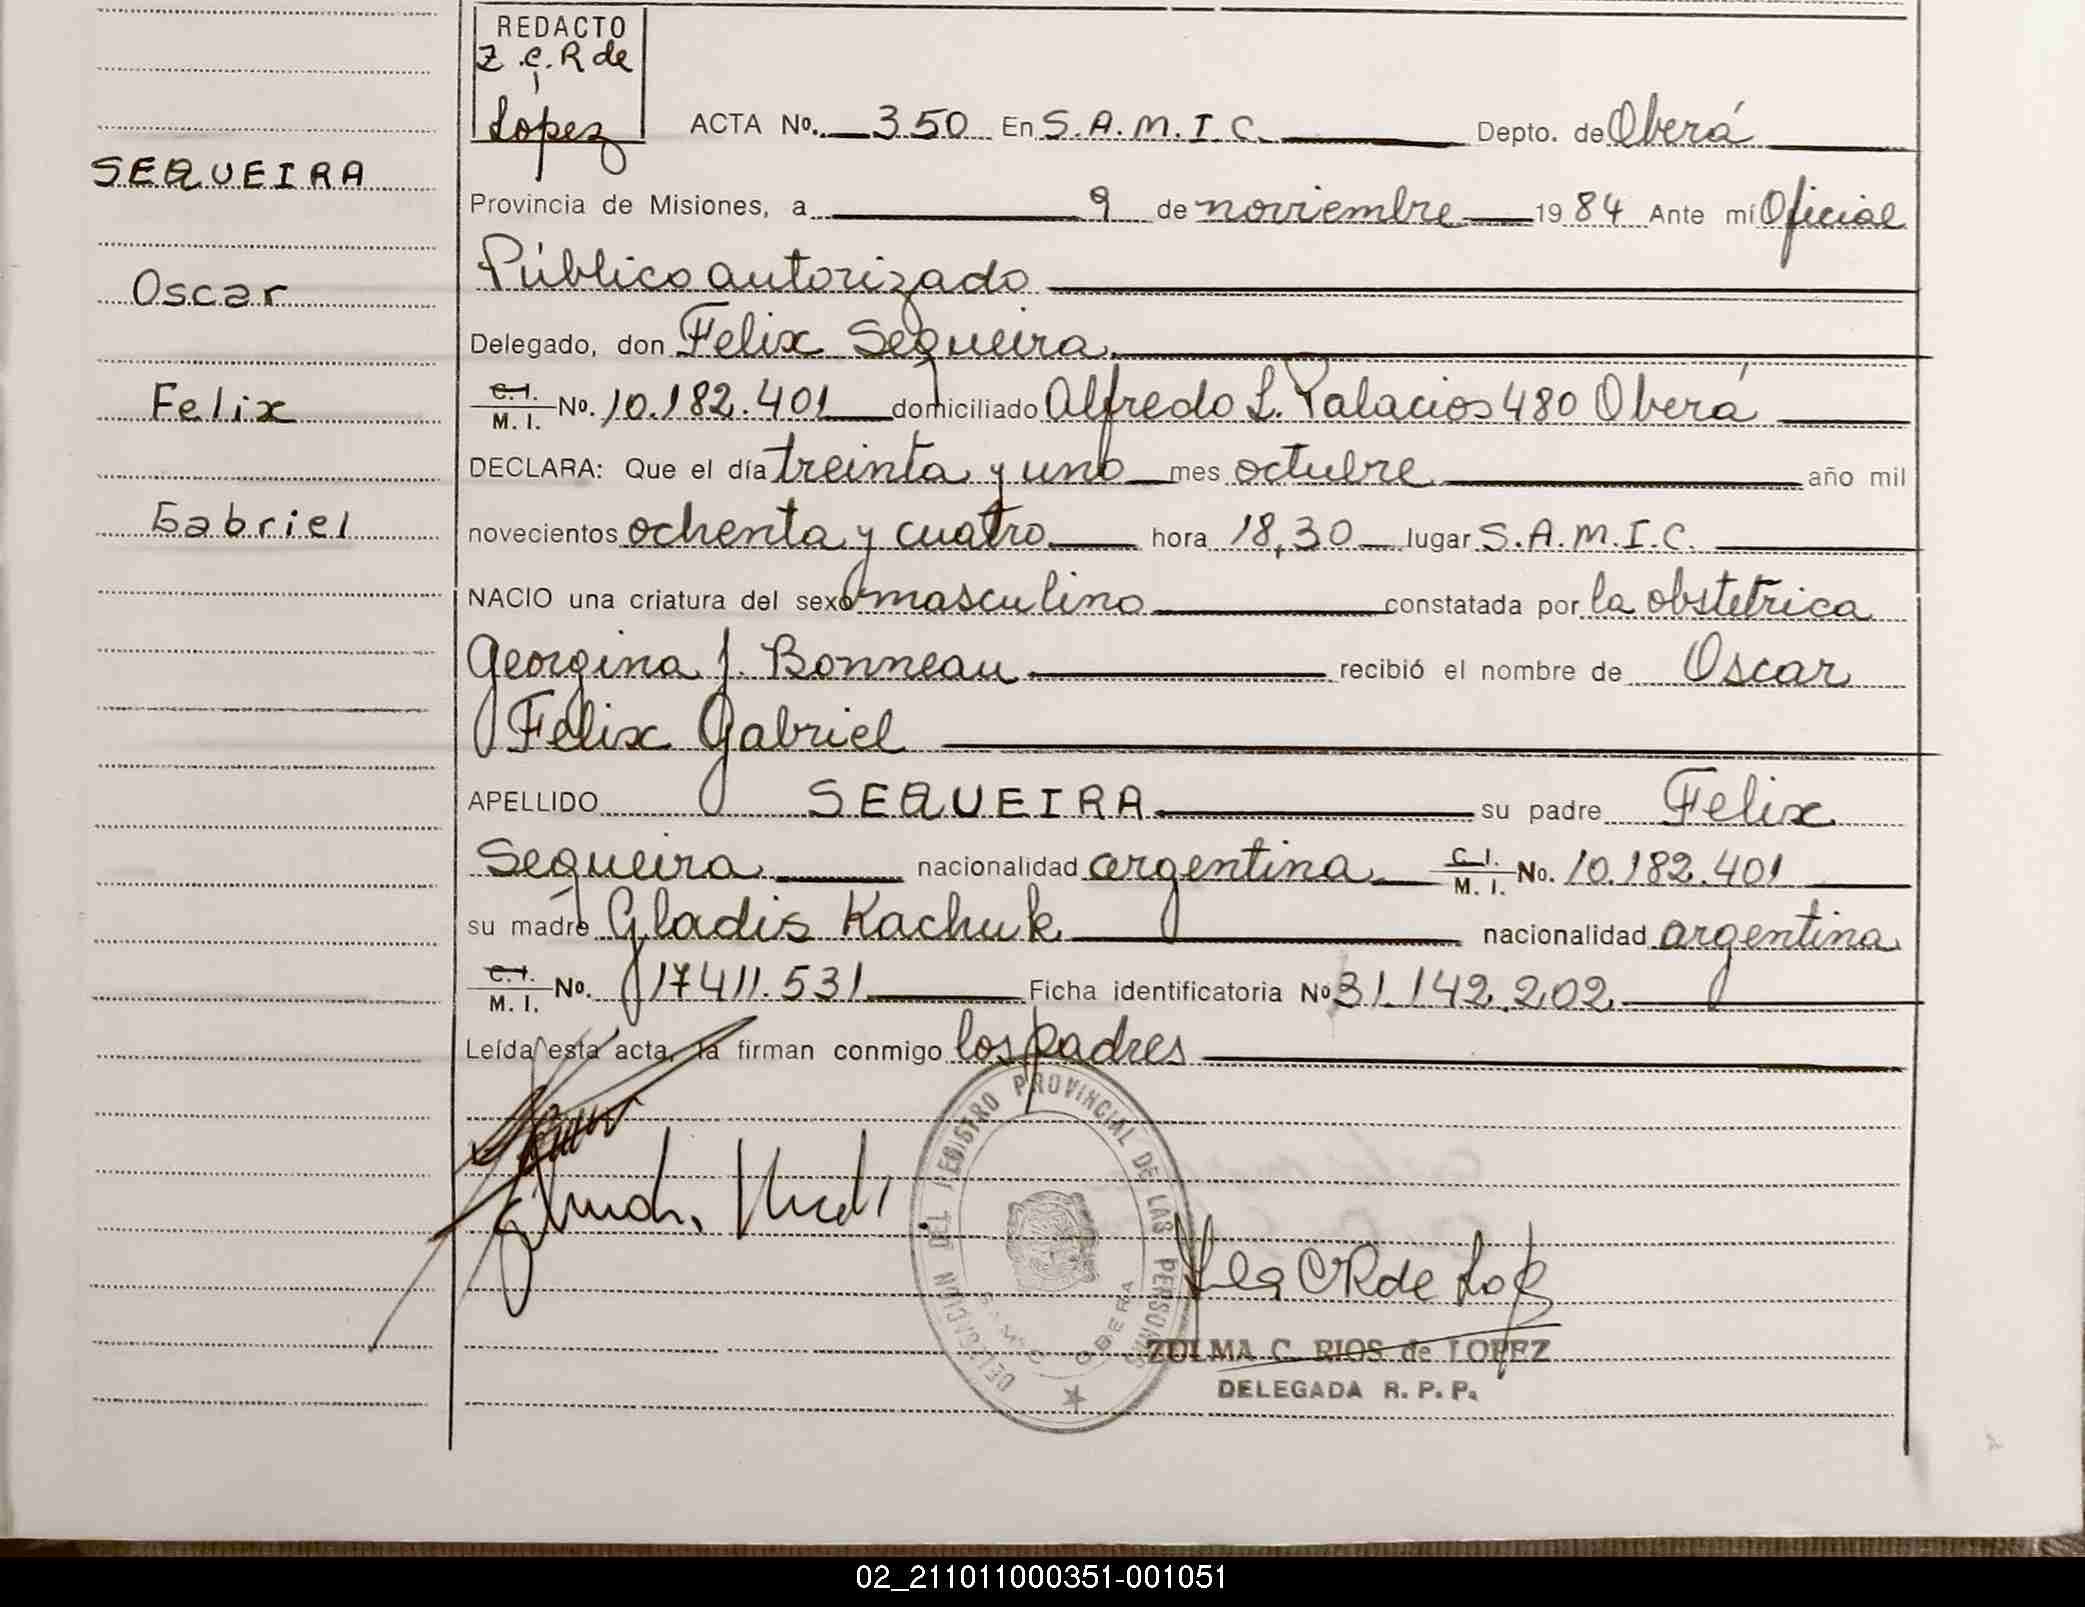 REDACTO
Z.C.R de
Lopez
ACTA No. 350 En S.A.M.I.C. Depto. de Oberá
SEQUEIRA
Provincia de Misiones, a 9 de noviembre 1984 Ante mí Oficial
Público autorizado
Oscar
Delegado, don Felix Sequeira
Felix
C.I. / M.I. No. 10.182.401 domiciliado Alfredo L. Palacios 480 Oberá
DECLARA: Que el día treinta y uno mes octubre año mil
Gabriel
novecientos ochenta y cuatro hora 18,30 lugar S.A.M.I.C.
NACIO una criatura del sexo masculino constatada por la obstetrica
Georgina J. Bonneau recibió el nombre de Oscar
Felix Gabriel
APELLIDO SEQUEIRA su padre Felix
Sequeira nacionalidad argentina C.I. / M.I. No. 10.182.401
su madre Gladis Kachuk nacionalidad argentina
C.I. / M.I. No. 17411.531 Ficha identificatoria No 31.142.202
Leída esta acta, la firman conmigo los padres
DELEGACION DEL REGISTRO PROVINCIAL DE LAS PERSONAS
S.A.M.I.C. OBERA
ZULMA C. RIOS de LOPEZ
DELEGADA R. P. P.
02_211011000351-001051